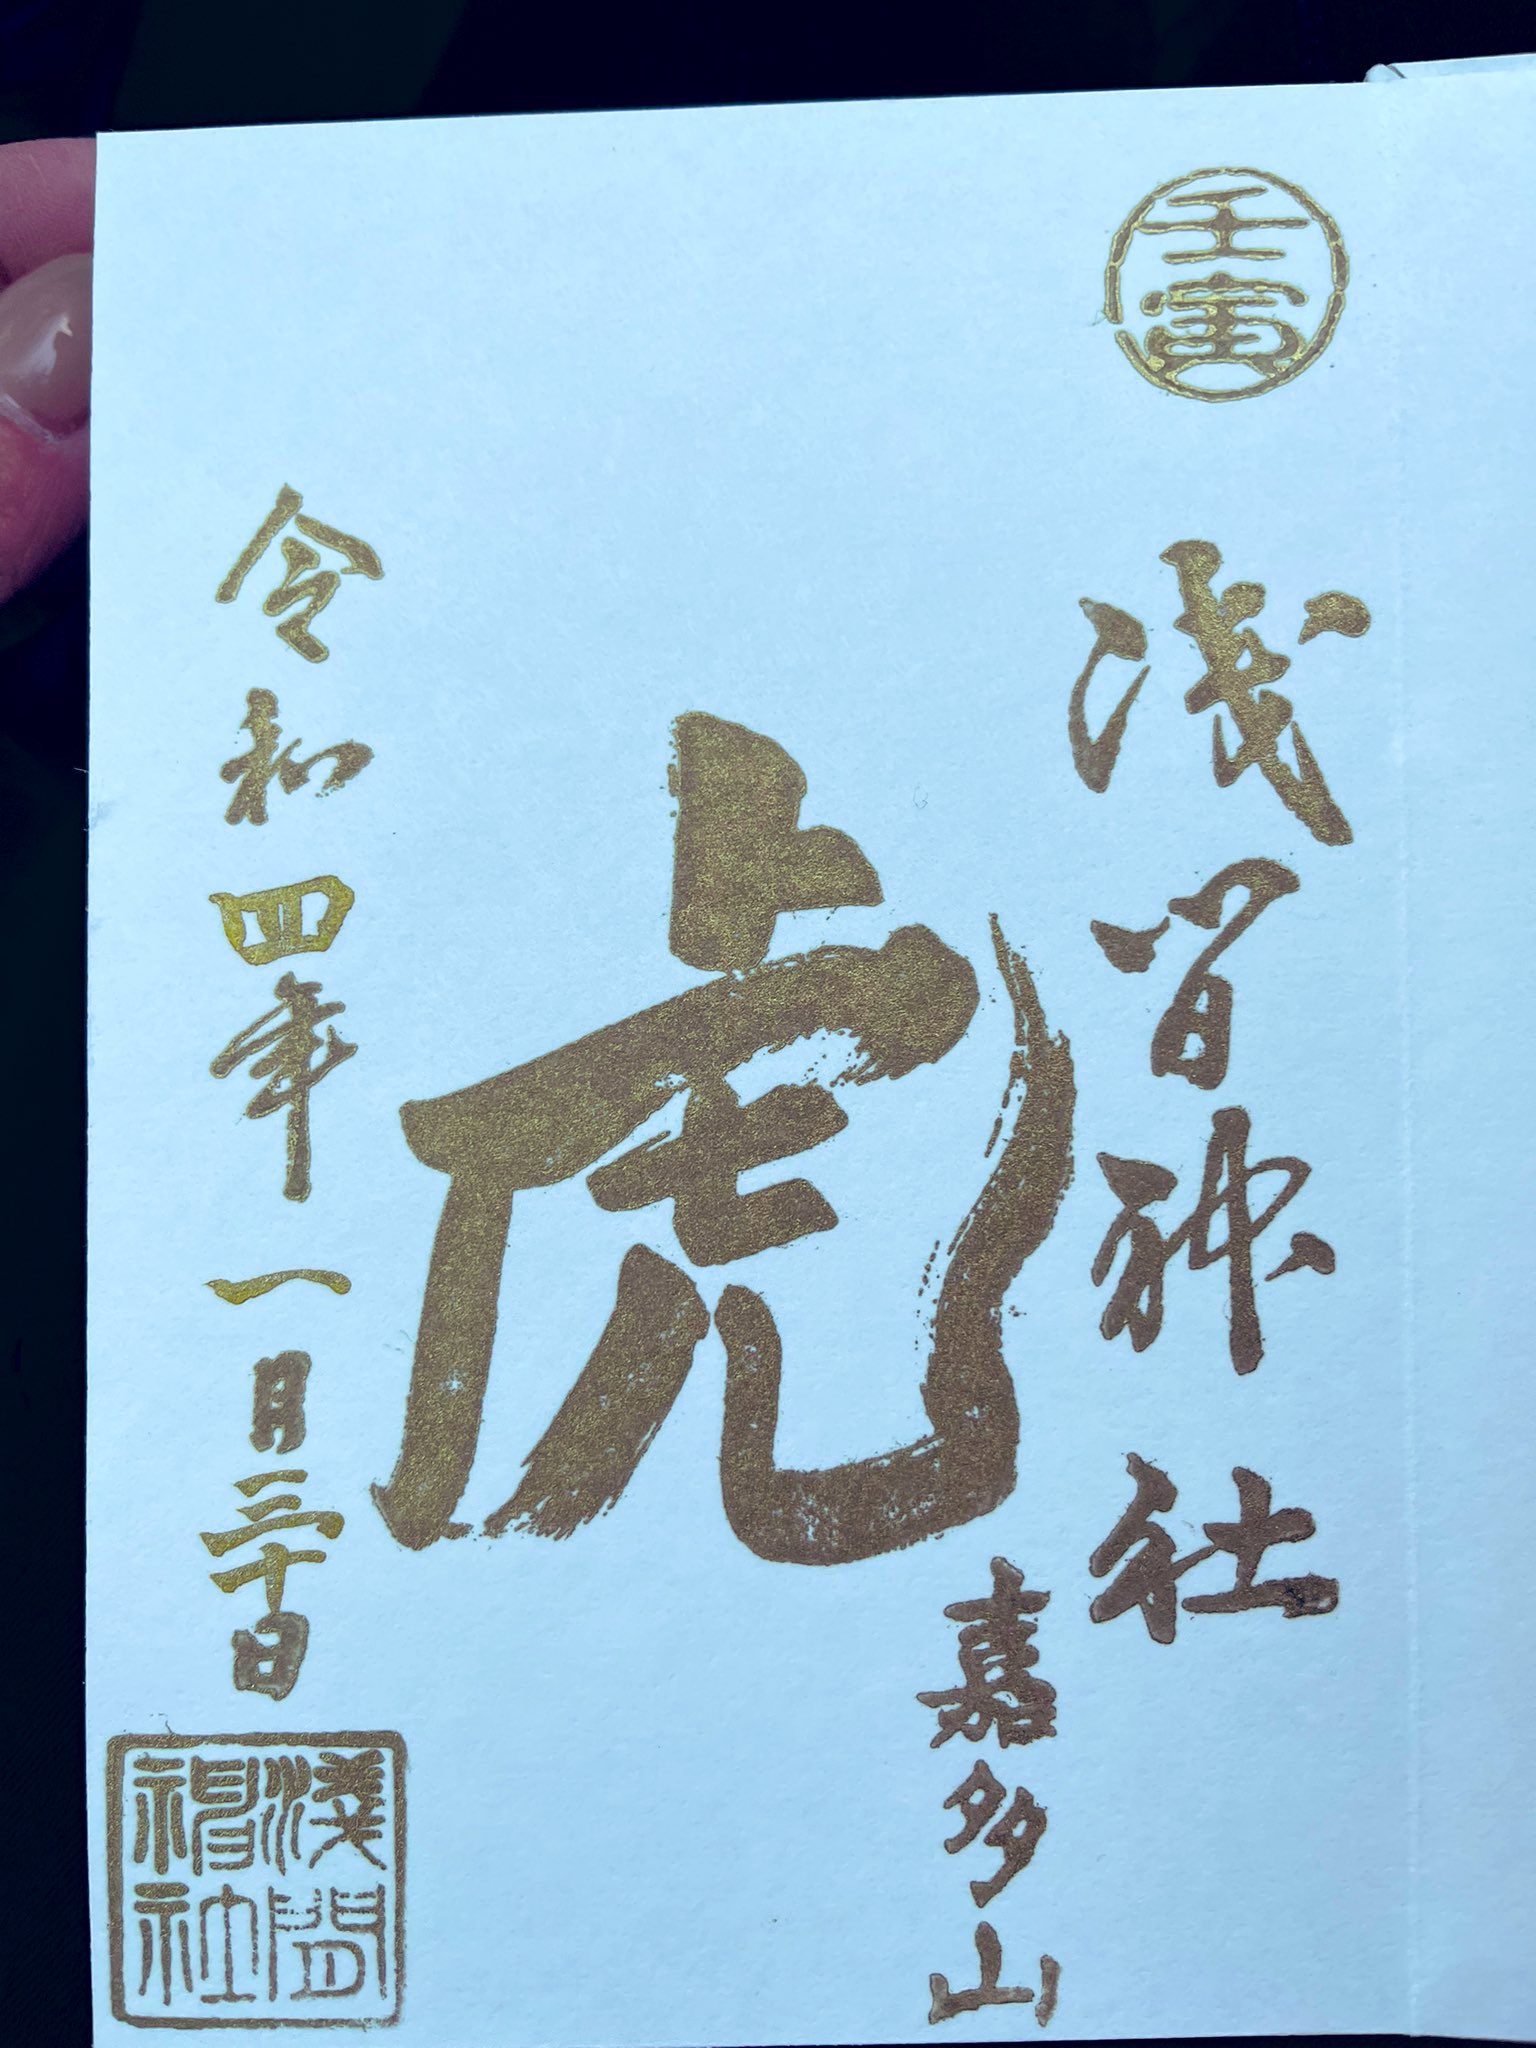 壬寅
浅間神社
嘉多山
虎
令和四年一月三十日
淺間神社